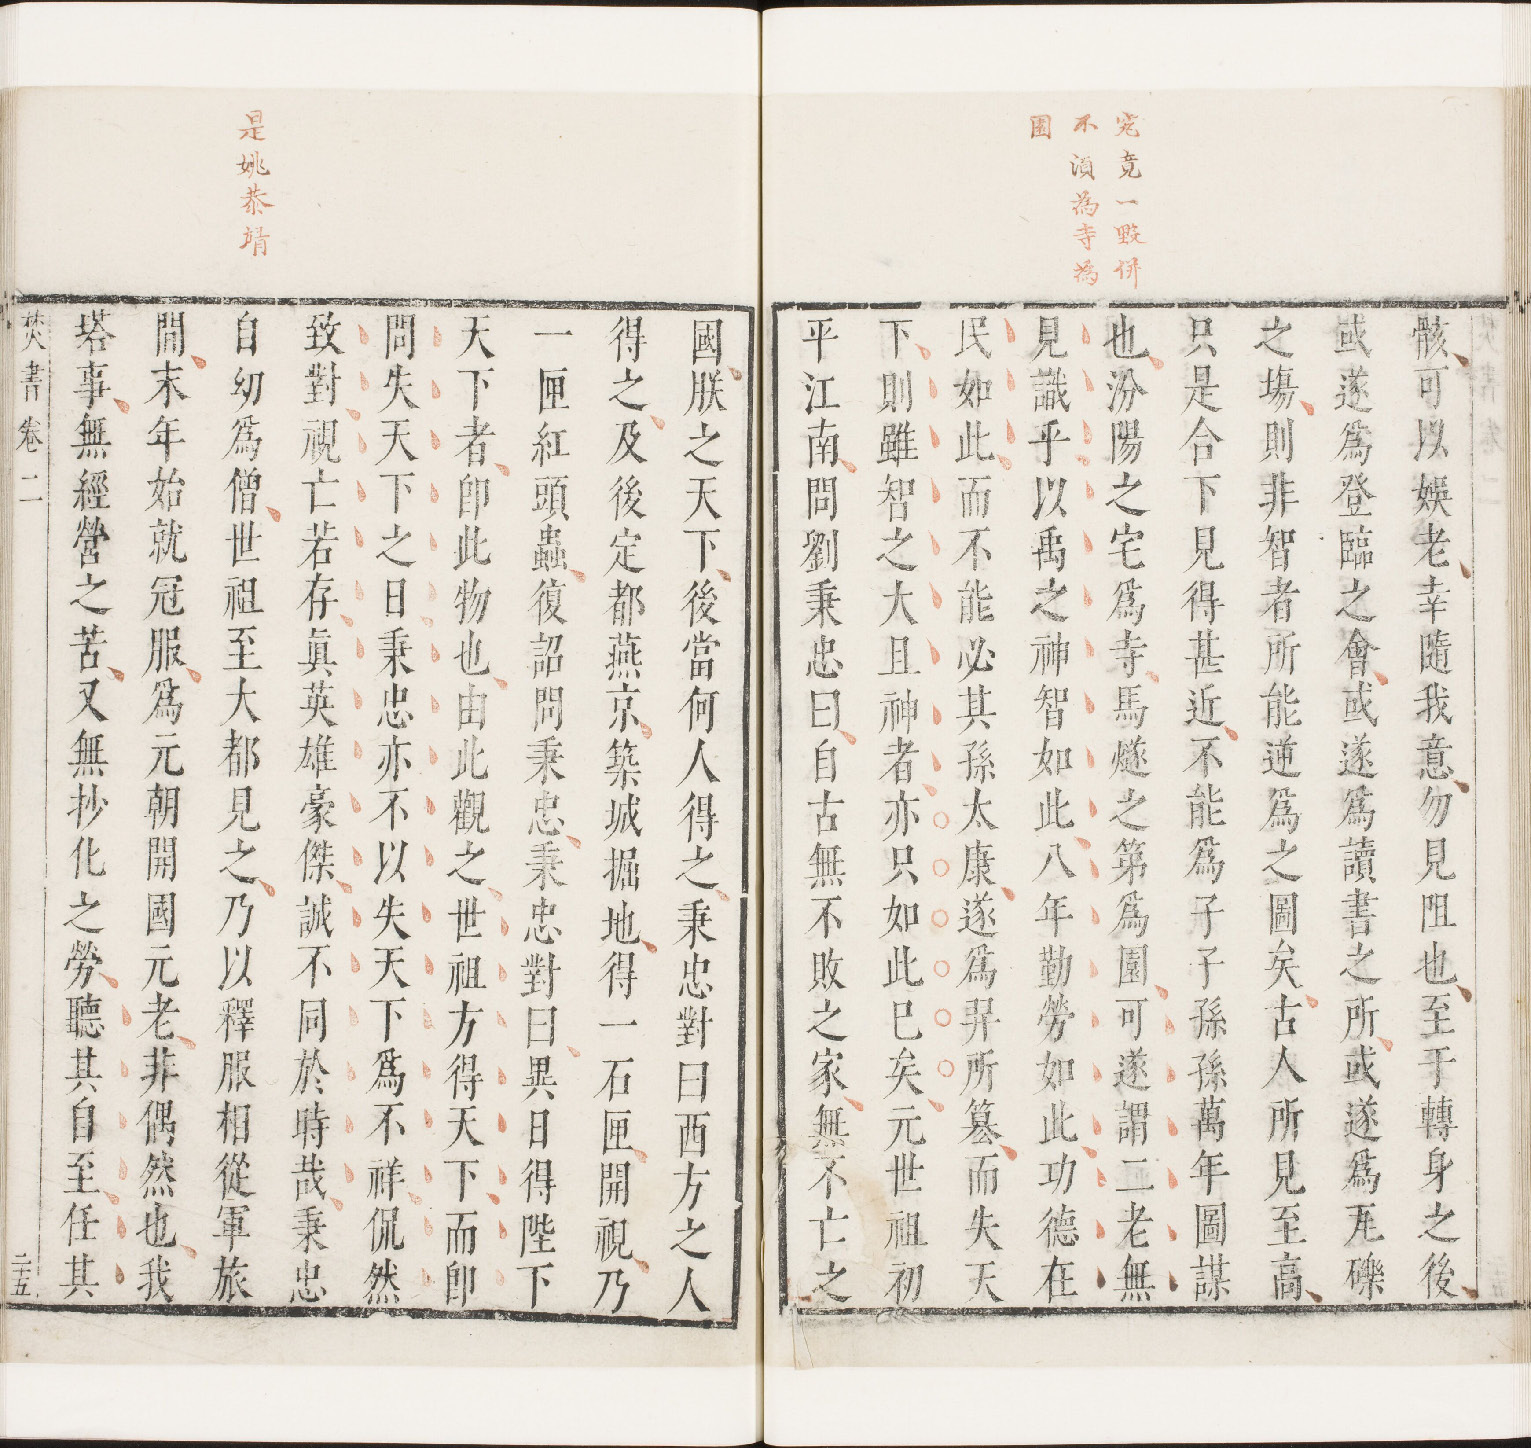 究竟一毀併
不須為寺為
園
骸可以娛老幸隨我意勿見阻也至于轉身之後
或遂爲登臨之會或遂爲讀書之所或遂爲瓦礫
之塲則非智者所能逆爲之圖矣古人所見至高
只是合下見得甚近不能爲子子孫孫萬年圖謀
也汾陽之宅爲寺馬燧之第爲園可遂謂二老無
見識乎以禹之神智如此八年勤勞如此功德在
民如此而不能必其孫太康遂爲羿所簒而失天
下則雖智之大且神者亦只如此巳矣元世祖初
平江南問劉秉忠曰自古無不敗之家無不亡之
是姚恭靖
國朕之天下後當何人得之秉忠對曰西方之人
得之及後定都燕京築城掘地得一石匣開視乃
一匣紅頭蟲復詔問秉忠秉忠對曰異日得陛下
天下者卽此物也由此觀之世祖方得天下而卽
問失天下之日秉忠亦不以失天下爲不祥侃然
致對視亡若存眞英雄豪傑誠不同於時哉秉忠
自幼爲僧世祖至大都見之乃以釋服相從軍旅
間末年始就冠服爲元朝開國元老非偶然也我
塔事無經營之苦又無抄化之勞聽其自至任其
焚書卷二
二十五